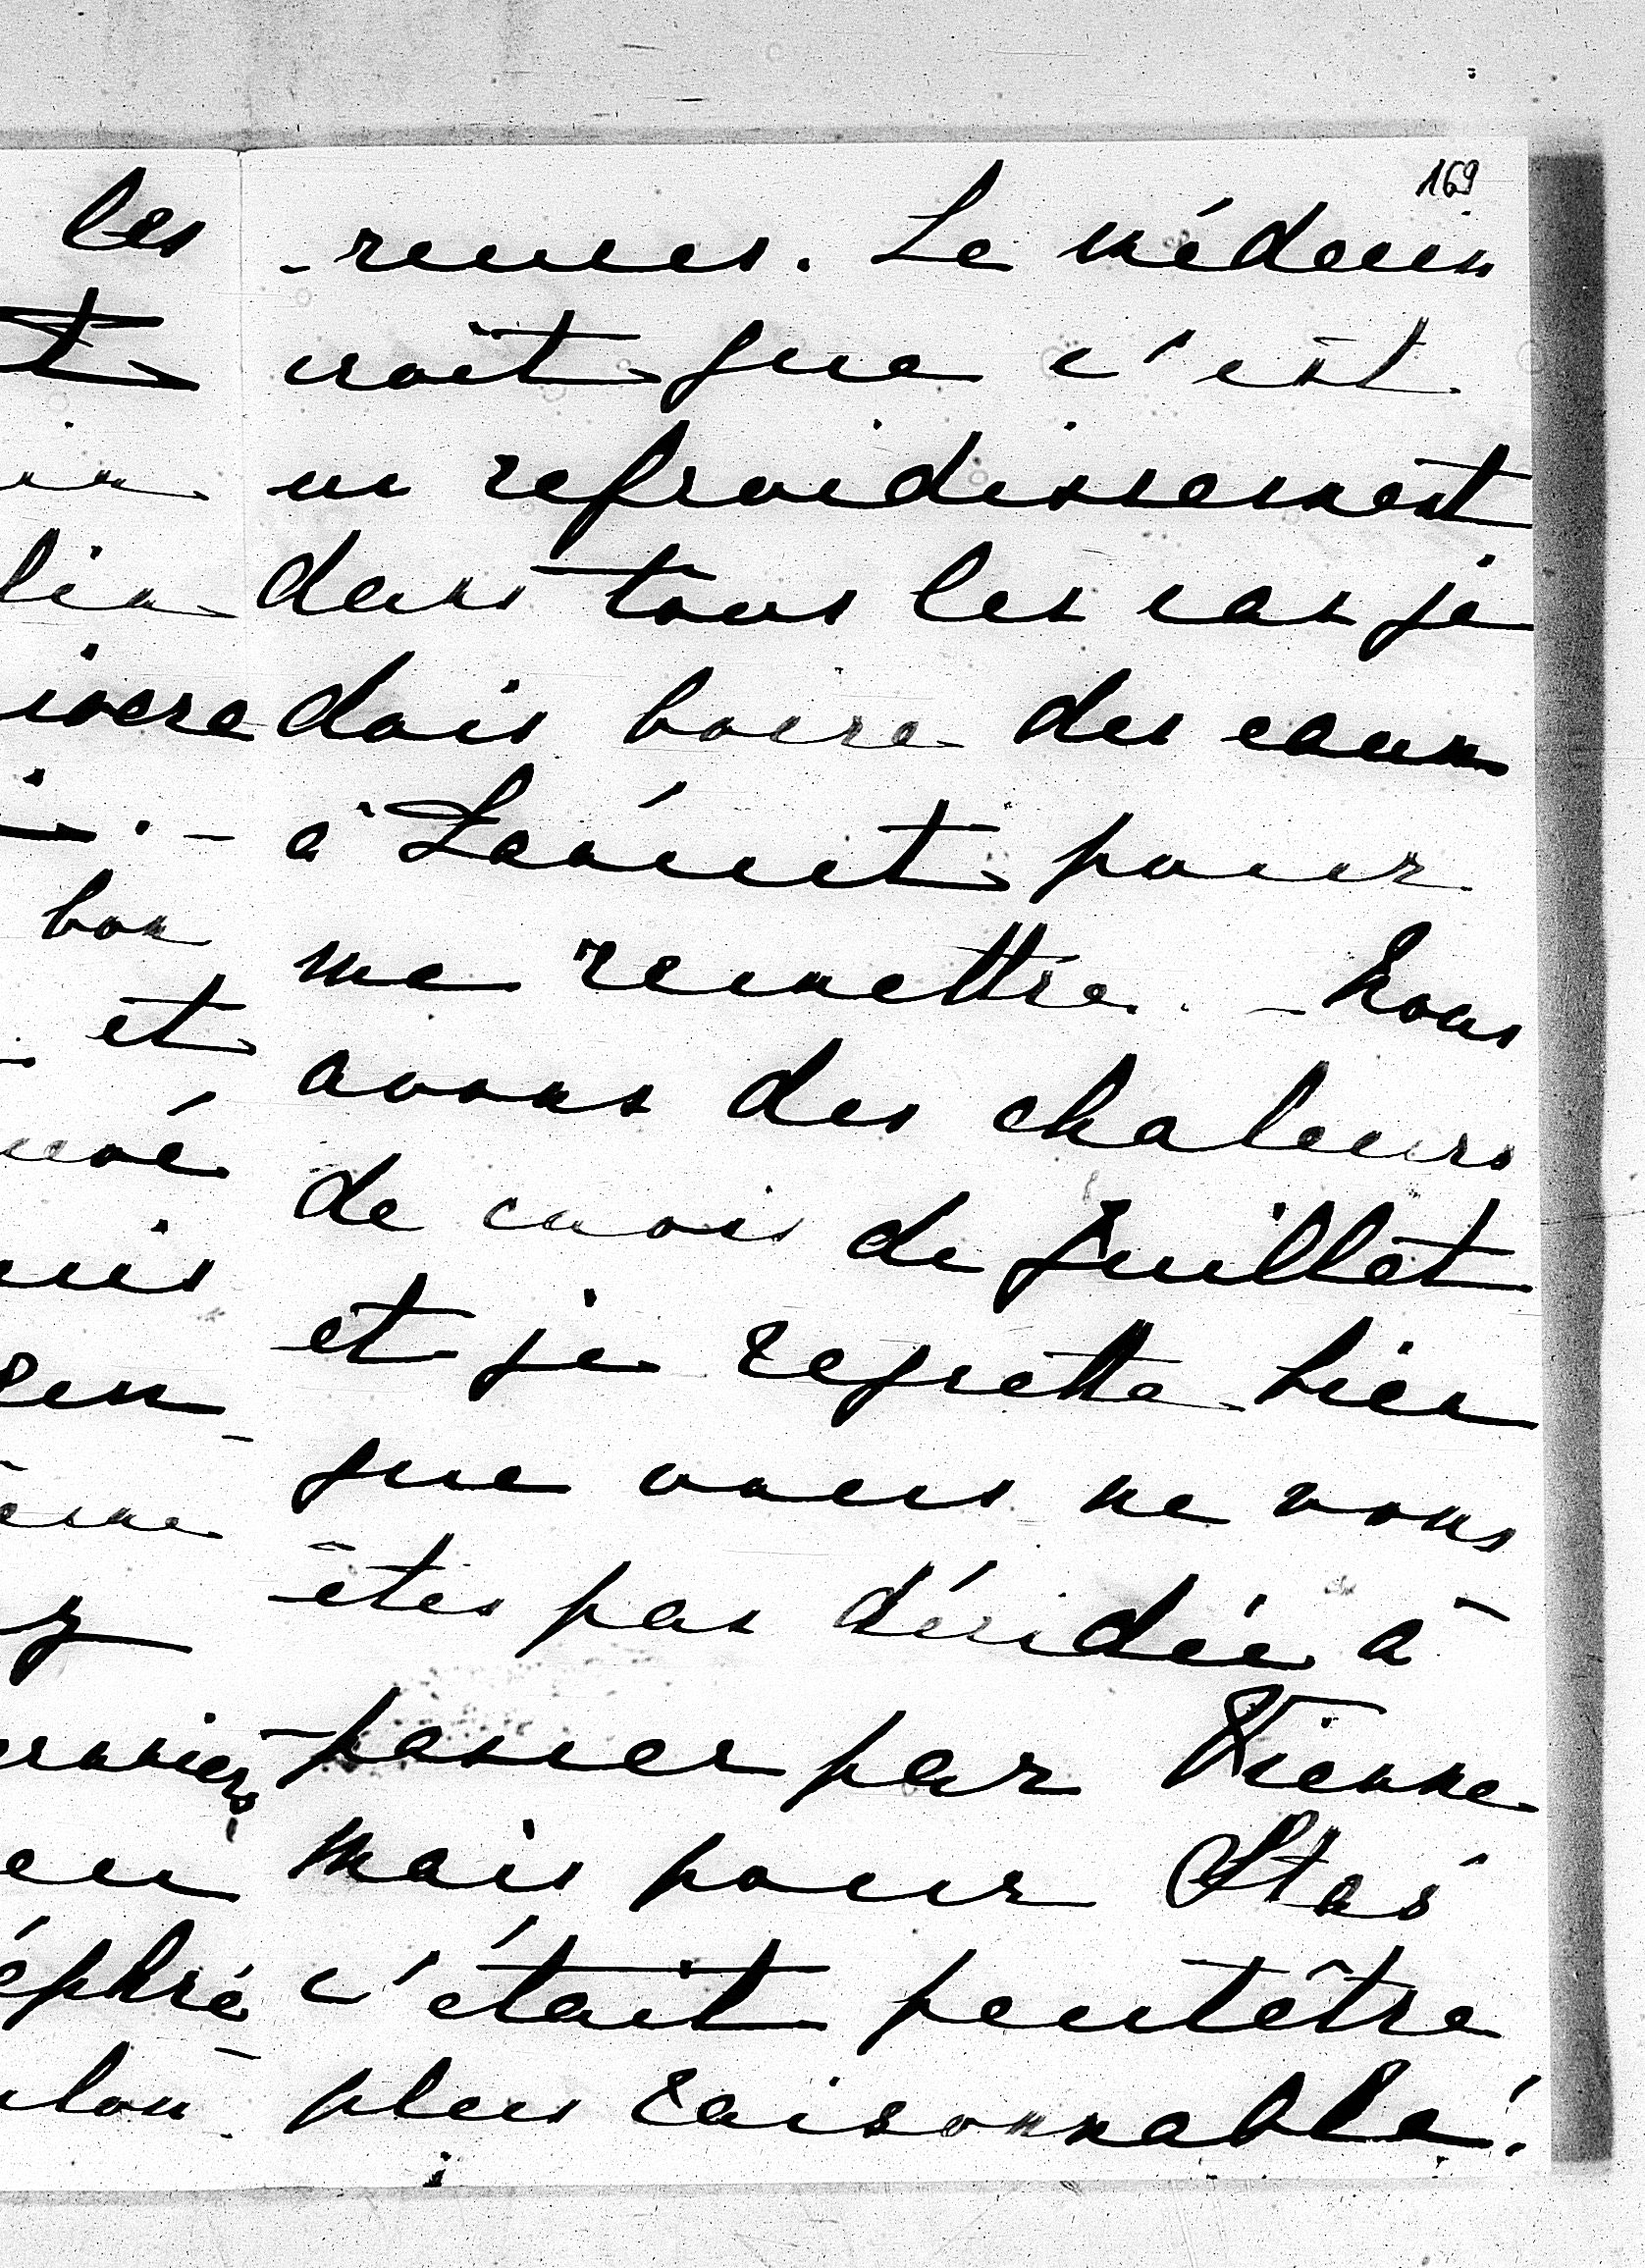 les
bon
et
169
-reuses. Le médecin
croit que c'est
un refroidissement
dans tous les cas je
dois boire des eaux
à Łańcut pour
me remettre. - Nous
avons des chaleurs
de mois de Juillet
et je regrette bien
que vous ne vous
êtes pas décidée à
passer par Vienne
mais pour Staś
c'était peutêtre
plus raisonnable!